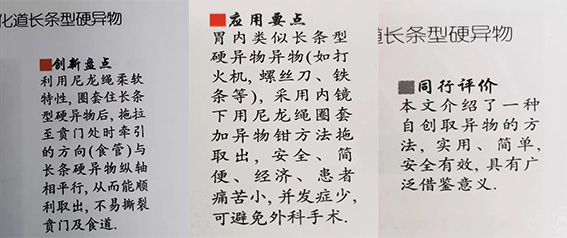 化道长条型硬异物
■创新盘点
利用尼龙绳柔软
特性,圈套住长条
型硬异物后,拖拉
至贲门处时牵引
的方向(食管)与
长条硬异物纵轴
相平行,从而能顺
利取出,不易撕裂
贲门及食道.
■应用要点
胃内类似长条型
硬异物异物(如打
火机,螺丝刀、铁
条等),采用内镜
下用尼龙绳圈套
加异物钳方法拖
取出,安全、简
便、经济、患者
痛苦小,并发症少,
可避免外科手术.
道长条型硬异物
■同行评价
本文介绍了一种
自创取异物的方
法,实用、简单,
安全有效,具有广
泛借鉴意义.